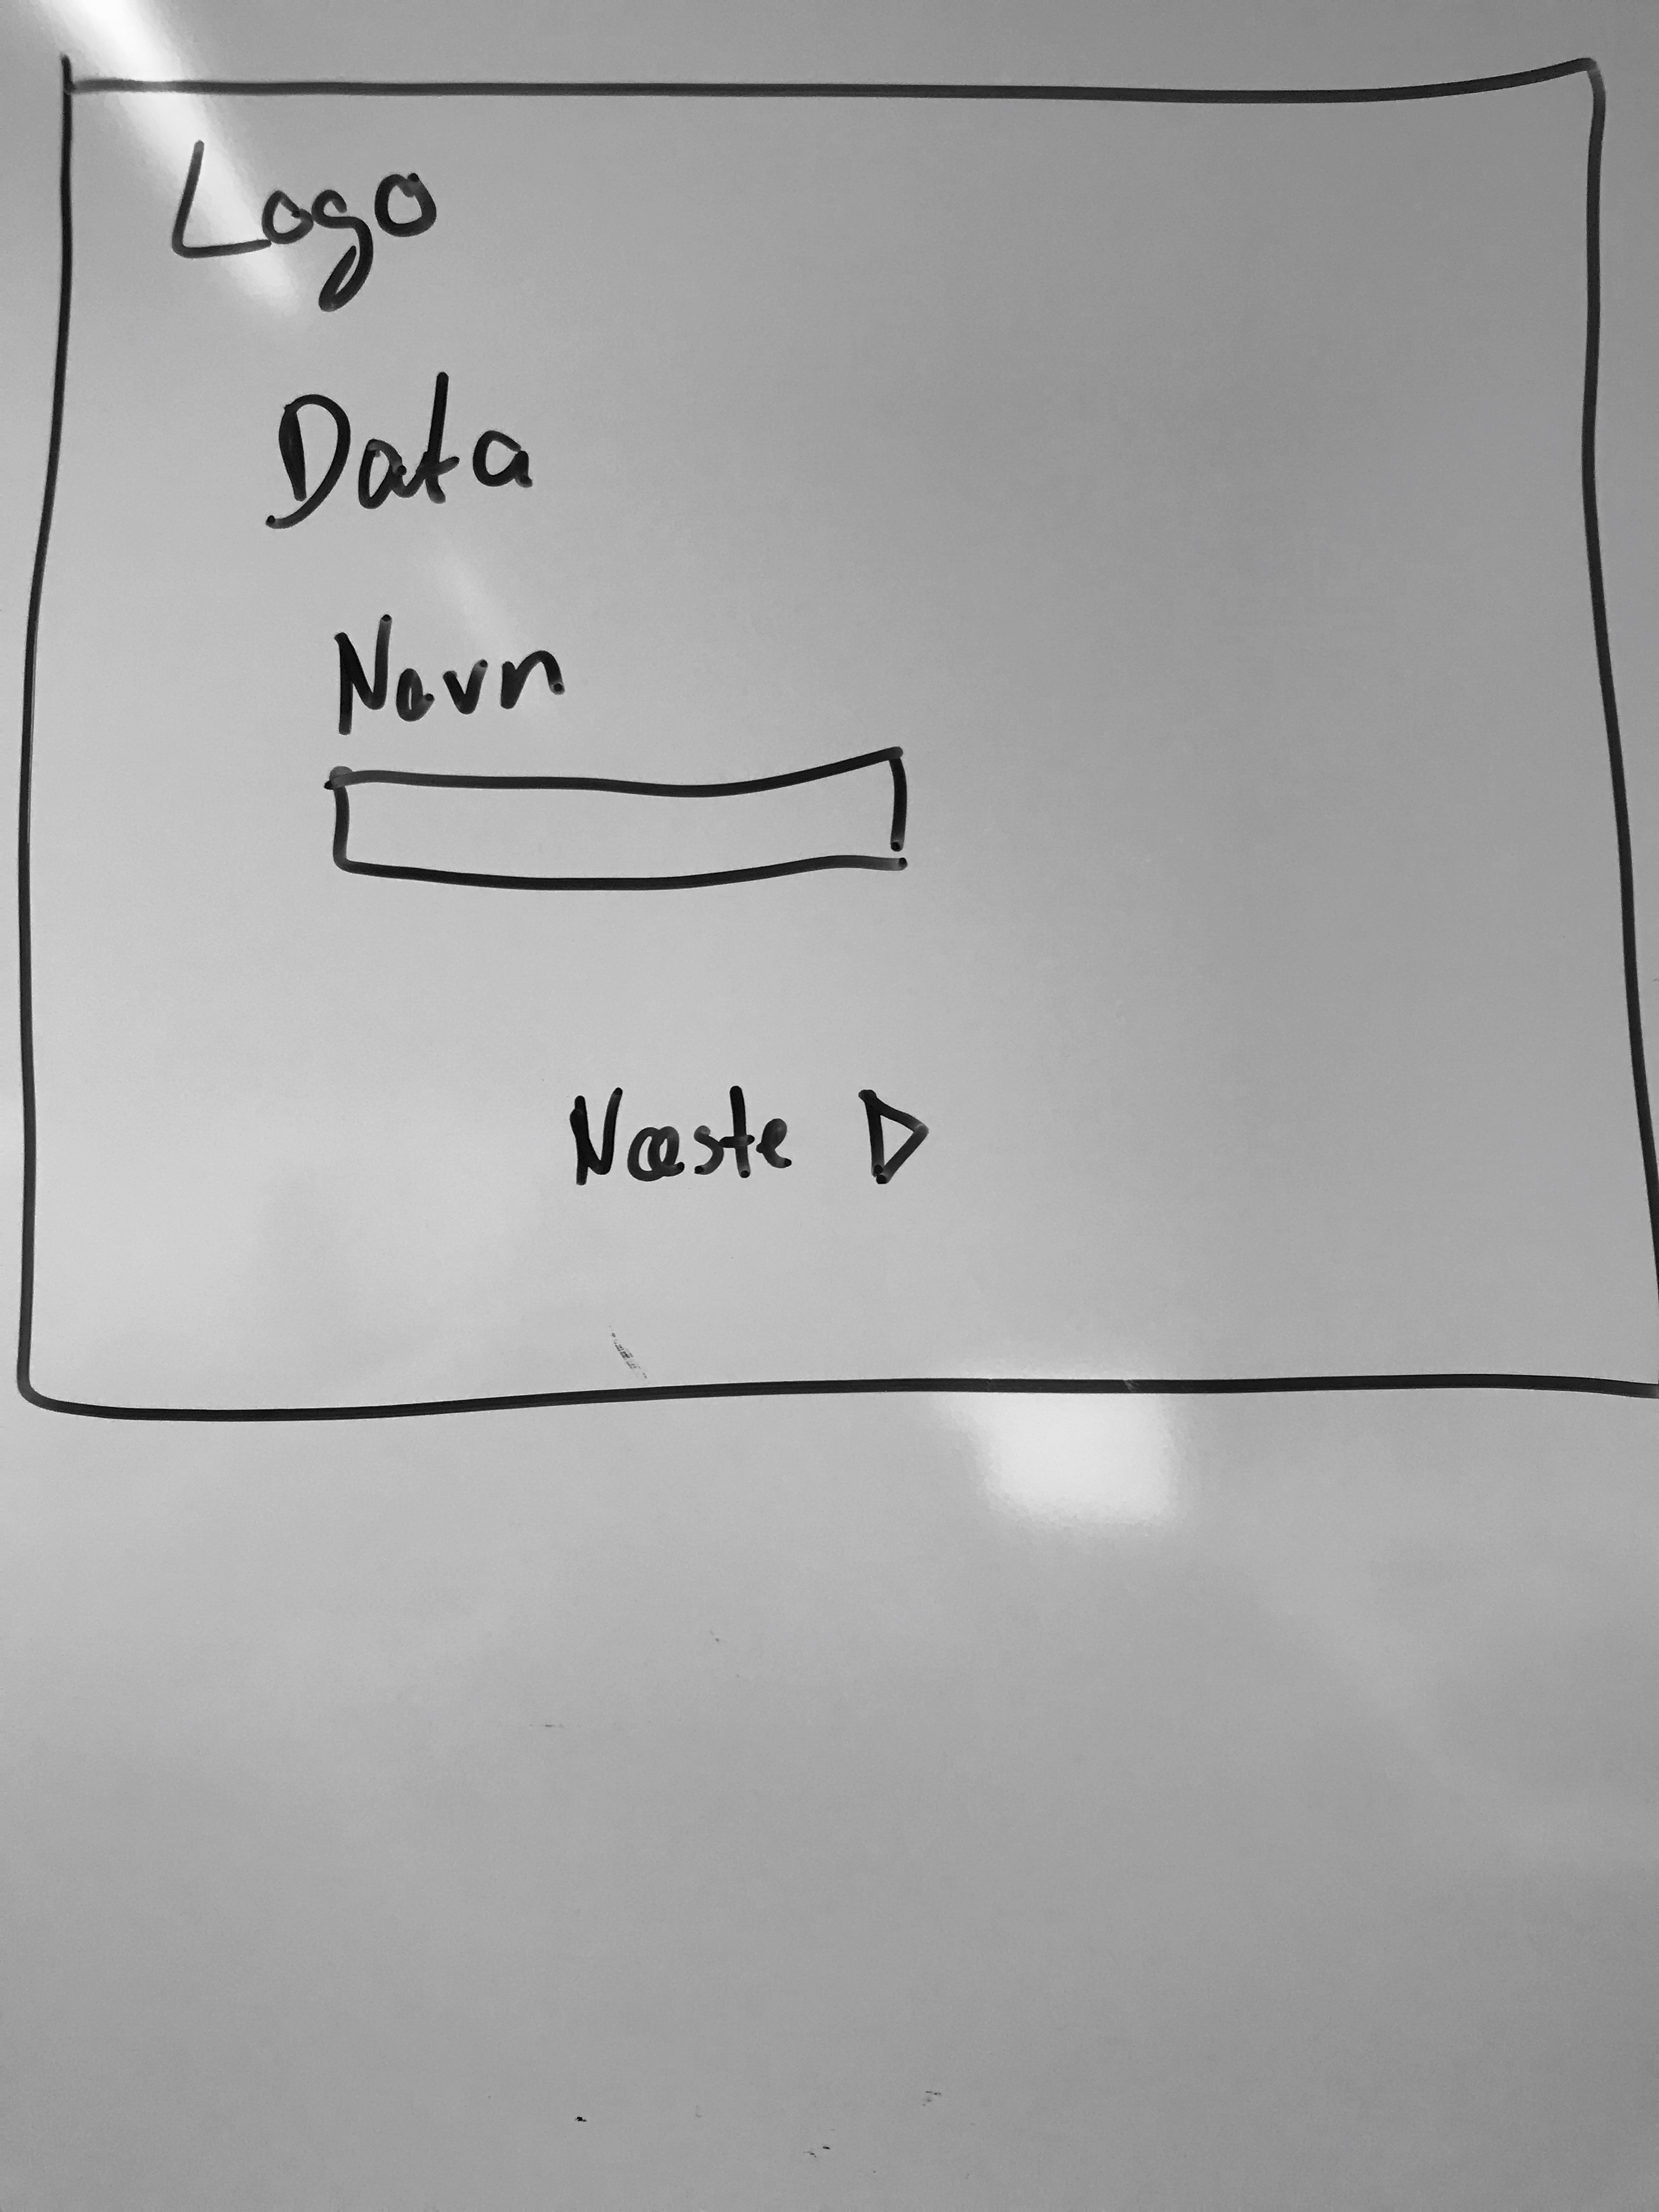 Logo
Data
Navn
Næste